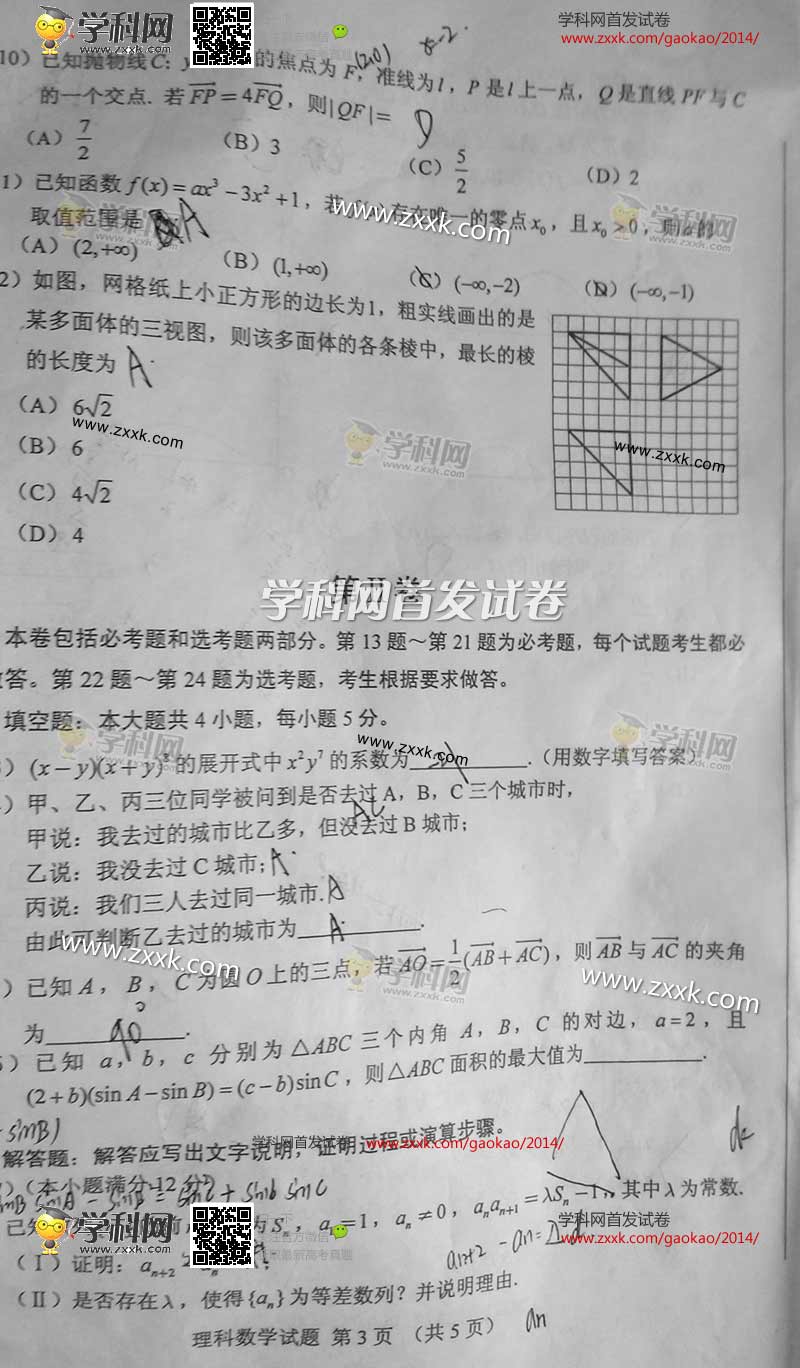 学科网 www.zxxk.com
学科网首发试卷
www.zxxk.com/gaokao/2014/
10）已知抛物线C：y 的焦点为 F，准线为l，P 是l上一点，Q是直线PF与C
(2,0) x=-2
的一个交点. 若FP=4FQ，则|QF|=
(A) 7/2 (B) 3 (C) 5/2 (D) 2
1）已知函数 f(x)=ax³-3x²+1，若 存在唯一的零点x₀，且x₀>0，则a的
www.zxxk.com
取值范围是 A
学科网 www.zxxk.com
(A) (2,+∞) (B) (1,+∞) (C) (-∞,-2) (D) (-∞,-1)
2）如图，网格纸上小正方形的边长为1，粗实线画出的是
某多面体的三视图，则该多面体的各条棱中，最长的棱
的长度为 A.
(A) 6√2
www.zxxk.com
(B) 6
学科网 www.zxxk.com
www.zxxk.com
(C) 4√2
(D) 4
第II卷
学科网首发试卷
本卷包括必考题和选考题两部分。第 13 题～第 21 题为必考题，每个试题考生都必
答。第 22 题～第 24 题为选考题，考生根据要求做答。
填空题：本大题共 4 小题，每小题 5 分。
学科网 www.zxxk.com
学科网 www.zxxk.com
www.zxxk.com
）(x-y)(x+y)⁸的展开式中x²y⁷的系数为 .（用数字填写答案）
）甲、乙、丙三位同学被问到是否去过A，B，C三个城市时，
AC
甲说：我去过的城市比乙多，但没去过B城市；
乙说：我没去过C城市； A
丙说：我们三人去过同一城市. A
由此可判断乙去过的城市为 A .
www.zxxk.com
学科网 www.zxxk.com
www.zxxk.com
）已知A，B，C为圆O上的三点，若AO=1/2(AB+AC)，则AB与AC的夹角
为 90° .
）已知 a，b，c 分别为 △ABC 三个内角 A，B，C 的对边，a=2，且
(2+b)(sin A-sin B)=(c-b)sin C，则△ABC面积的最大值为 .
sinB)
学科网首发试卷
www.zxxk.com/gaokao/2014/
解答题：解答应写出文字说明，证明过程或演算步骤。
）（本小题满分12分）
已知 为Sₙ，a₁=1，aₙ≠0，aₙaₙ₊₁=λSₙ-1，其中λ为常数.
学科网 www.zxxk.com
学科网首发试卷
www.zxxk.com/gaokao/2014/
（Ⅰ）证明：aₙ₊₂-aₙ
an+2 - an =
（Ⅱ）是否存在λ，使得{aₙ}为等差数列？并说明理由.
an
理科数学试题 第3页 （共5页）